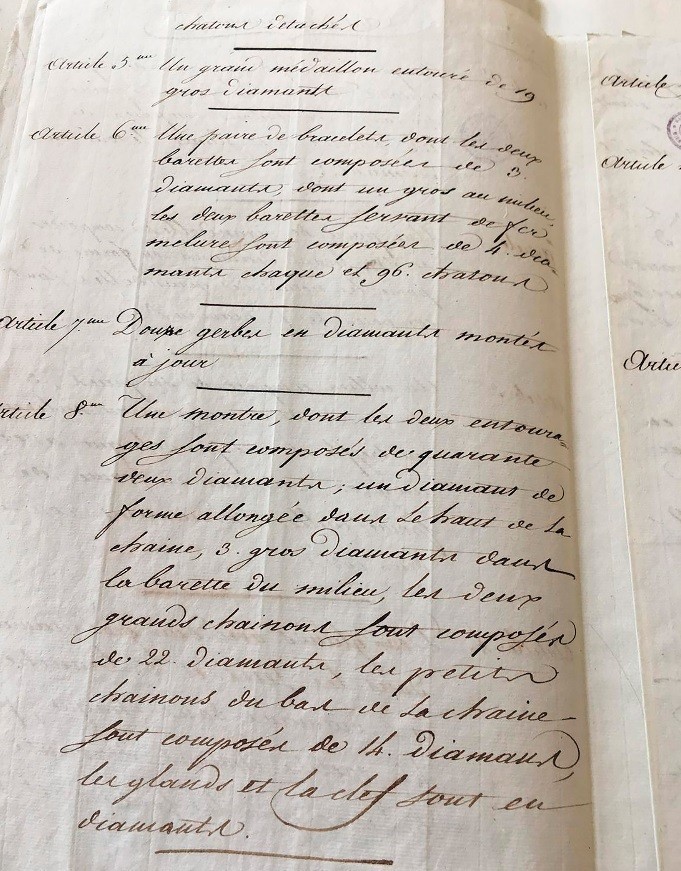 chatons detachés
Article 5.me Un grand médaillon entouré de 19
gros diamants
Article 6.me Une paire de bracelets, dont les deux
barettes sont composées de 3.
diamants, dont un gros au milieu,
les deux barettes servant de fer-
melure sont composées de 4. dia-
mants chaque et 96. chatons
Article 7.me Douze gerbes en diamants montés
à jour
Article 8.me Une montre, dont les deux entoura-
ges sont composés de quarante
deux diamants; un diamant de
forme allongée dans le haut de la
chaine, 3. gros diamants dans
la barette du milieu, les deux
grands chainons sont composés
de 22. diamants, les petits
chainons du bas de la chaine
sont composés de 14. diamans,
les glands et la clef sont en
diamants.
Article
Article
Article